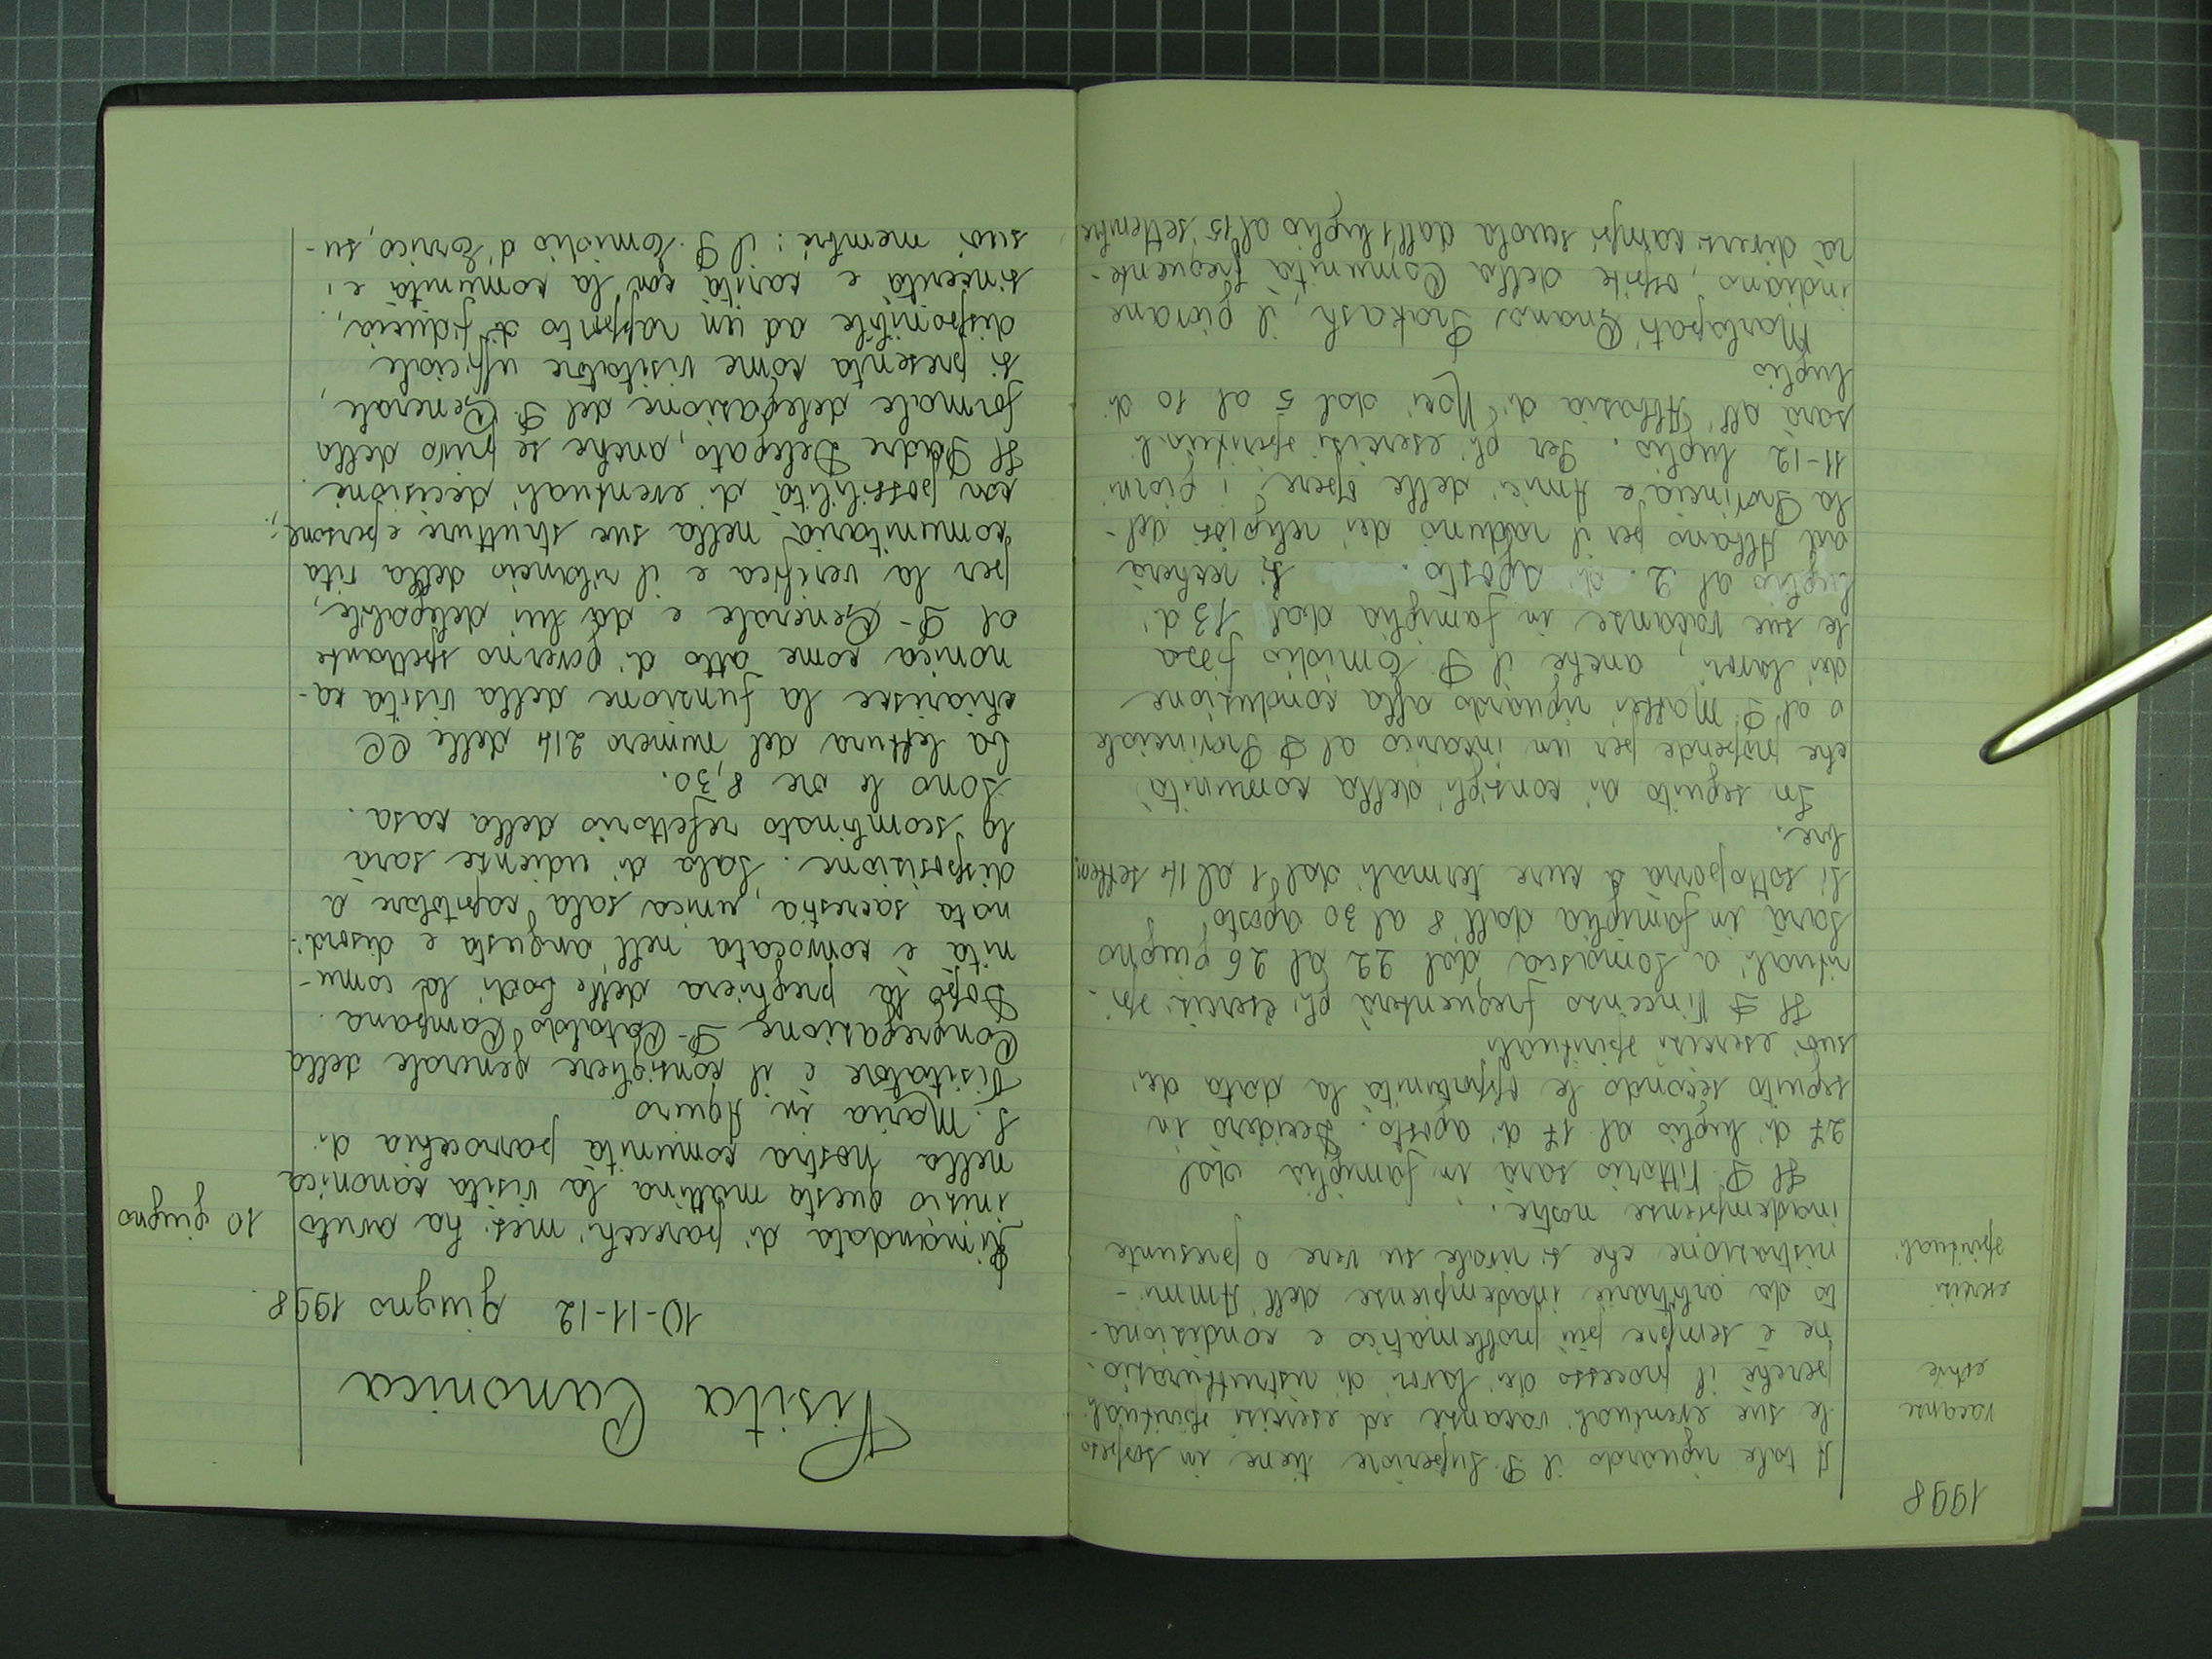 1998
A tale riguardo il P. Superiore tiene in sospeso
vacanze
le sue eventuali vacanze ed esercizi spirituali
estive
perché il processo dei lavori di ristrutturazio-
ne è sempre più problematico e condiziona-
esercizi
to da arbitrarie inadempienze dell'Ammi-
spirituali
nistrazione che si rivale su vere o presunte
inadempienze nostre.
Il P. Vittorio sarà in famiglia dal
27 di luglio al 17 di agosto. Deciderà in
seguito secondo le opportunità la data dei
suoi esercizi spirituali
Il P Vincenzo frequenterà gli esercizi spi-
rituali a Somasca dal 22 al 26 giugno
Sarà in famiglia dall'8 al 30 agosto.
Si sottoporrà a cure termali dal 1 al 14 settem
bre.
In seguito ai consigli della comunità
che propende per un incarico al P Provinciale
o al P. Mattei riguardo alla conduzione
dei lavori, anche il P. Emidio fissa
le sue vacanze in famiglia dal 13 di
luglio al 2 di agosto. Si recherà
ad Albano per il raduno dei religiosi del-
la Provincia e Amici delle Opere i giorni
11-12 luglio. Per gli esercizi spirituali
sarà all'Abbazia di Noci dal 5 al 10 di
luglio
Marlapati Gnana Prakash, il giovane
indiano, ospite della Comunità frequente-
rà diversi campi scuola dall'1 luglio al 15 settembre
Visita Canonica
10-11-12 giugno 1998.
10 giugno
Rimandata di parecchi mesi ha avuto
inizio questa mattina la visita canonica
nella nostra comunità parrocchia di
S. Maria in Aquiro
Visitatore è il consigliere generale della
Congregazione P. Cataldo Campana.
Dopo la preghiera delle Lodi la comu-
nità è convocata nell'angusta e disordi-
nata sacrestia, unica sala capitolare a
disposizione. Sala di udienze sarà
lo scombinato refettorio della casa.
Sono le ore 8,30.
La lettura del numero 214 delle CC
chiarisce la funzione della visita ca-
nonica come atto di governo spettante
al P. Generale e da lui delegabile,
per la verifica e il rilancio della vita
comunitaria nella sue strutture e persone,
con possibilità di eventuali decisioni.
Il Padre Delegato, anche se privo della
formale delegazione del P. Generale,
si presenta come visitatore ufficiale
disponibile ad un rapporto di fiducia,
sincerità e carità con la comunità e i
suoi membri: il P. Emidio d'Errico, su-